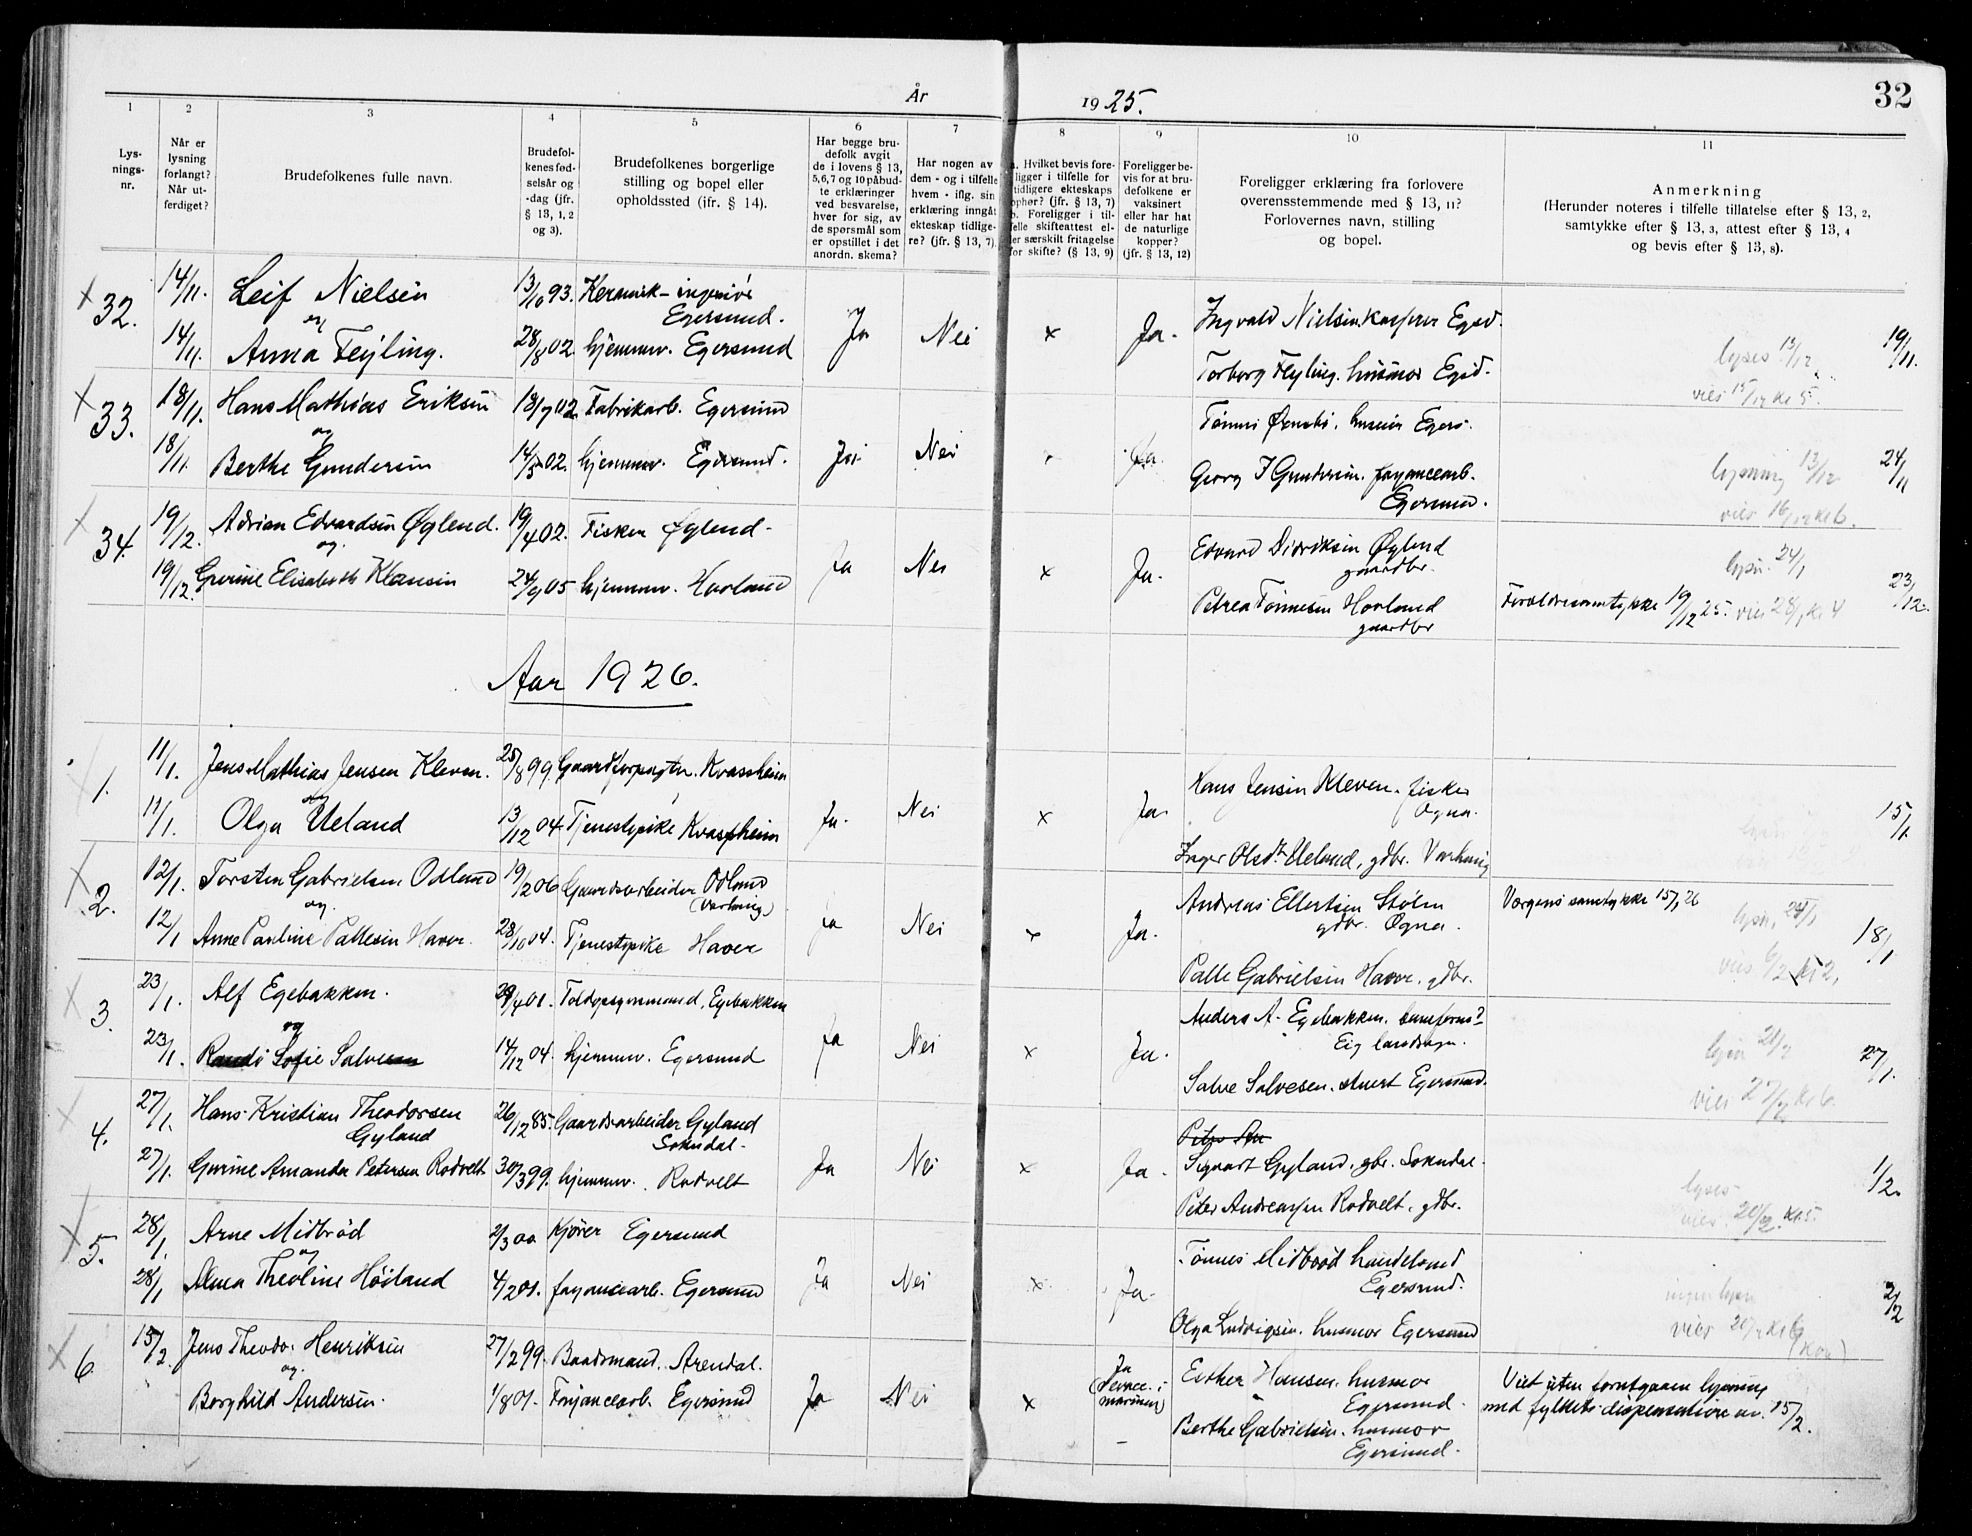 32
År 1925.
1 2 3 4 5 6 7 8 9 10 11
Lys-
nings-
nr.
Når er
lysning
forlangt?
Når ut-
ferdiget?
Brudefolkenes fulle navn.
Brudefol-
kenes fød-
selsår og
-dag (jfr.
§ 13, 1, 2
og 3).
Brudefolkenes borgerlige
stilling og bopel eller
opholdssted (ifr. § 14).
Har begge bru-
defolk avgit
de i lovens § 13,
5,6,7 og 10 påbud-
te erklæringer
ved besvarelse,
hver for sig, av
de spørsmål som
er opstillet i det
anordn. skema?
Har nogen av
dem - og i tilfelle
hvem - iflg. sin
erklæring inngåt
ekteskap tidlige-
re? (jfr. § 13, 7).
a. Hvilket bevis fore-
ligger i tilfelle for
tidligere ekteskaps
ophør? (jfr. § 13, 7)
b. Foreligger i til-
felle skifteattest el-
ler særskilt fritagelse
for skifte? (§ 13, 9)
Foreligger be-
vis for at bru-
defolkene er
vaksinert
eller har hat
de naturlige
kopper?
(jfr. § 13, 12)
Foreligger erklæring fra forlovere
overensstemmende med § 13, 11?
Forlovernes navn, stilling
og bopel.
Anmerkning
(Herunder noteres i tilfelle tillatelse efter § 13, 2,
samtykke efter § 13, 3, attest efter § 13, 4
og bevis efter § 13, 8).
x 32. 14/11. Leif Nielsen 13/10 93. Keramik-ingeniør Egersund.
og
14/11. Anna Feyling. 28/8 02. hjemmev. Egersund Ja Nei x Ja.
Ingvald Nielsen. kasserer Egsd.
Torborg Feyling. husmor Egsd.
lyses 13/12
vies 15/12 kl 5.
19/11.
x 33. 18/11. Hans Mathias Eriksen 18/7 02. Fabrikarb. Egersund
og
18/11. Berthe Gundersen 14/5 02. hjemmev. Egersund. Ja. Nei Ja.
husmor Egers.
Georg I Gundersen. fayancearb.
Egersund.
lysning 13/12
vies 16/12 kl 6.
24/11
x 34. 19/12. Adrian Edvardsen Øglend. 19/4 02. Fisker Øglend.
og.
19/12. Gurine Elisabeth Klausen 24/9 05 hjemmev. Hovland Ja Nei x Ja.
Edvard Didriksen Øglend
gaardbr.
Petrea Tønnesen Hovland
gaardbr
lysn. 24/1
Forældresamtykke 19/12 25. vies 28/1 kl 4
23/12.
Aar 1926.
1. 11/1. Jens Mathias Jensen Kleven. 25/8 99. Gaardforpagter. Kvassheim
og
11/1. Olga Ueland 13/12 04. Tjenestepike Kvassheim Ja. Nei x Ja.
Hans Jensen Kleven. fisker
Ogna.
Inger Olsdtr. Ueland, gdbr. Varhaug
15/1.
x 2. 12/1. Torsten Gabrielsen Odland 19/2 06 Gaardsarbeider Odland
(Varhaug)
og.
12/1 Anne Pauline Pallesen Haver. 28/10 04. Tjenestepike Haver Ja Nei x Ja.
Andreas Ellertsen Stølen
gdbr. Ogna.
Palle Gabrielsen Haver, gdbr.
Værgens samtykke 15/1 26
lysn. 24/1
vies 6/2 kl 2,
18/1
x 3. 23/1. Alf Egebakken. 29/4 01. Toldopsynsmand, Egebakken
og
23/1. Randi Sofie Salvesen 14/12 04. hjemmev. Egersund Ja Nei x Ja.
Anders A. Egebakken.
Eig landsogn.
Salve Salvesen. Egersund.
lysn 21/2
vies 27/2 kl 6.
27/1.
x 4. 27/1. Hans Kristian Theodorsen
Gyland 26/12 85. Gaardsarbeider Gyland
Sokndal.
27/1. Gurine Amanda Petersen Rodvelt 30/3 99. hjemmev. Rodvelt Ja Nei x Ja.
Sigvart Gyland, gbr. Sokndal.
Peter Andreassen Rodvelt, gdbr.
lyses
vies kl 5.
1/2.
x 5. 28/1. Arne Midbrød 2/3 00 Kjører Egersund
og
28/1 Alma Theoline Höiland 4/2 01. fayancearb. Egersund Ja Nei x Ja.
Tønnes Midbrød handelsmd
Egersund.
Olga Ludvigsen. husmor Egersund
ingen lysn
vies 20/2 kl 6
2/2
x 6. 15/2. Jens Theodor Henriksen 27/2 99. Baadsmand. Arendal.
og.
Borghild Andersen. 1/8 01. Fayancearb. Egersund Ja Nei x
Ja
(Revacc. i
marinen)
–
Esther Hansen. husmor
Egersund.
Berthe Gabrielsen. husmor
Egersund.
Viet uten forutgaaen lysning
med fylkets dispensation av 15/2.